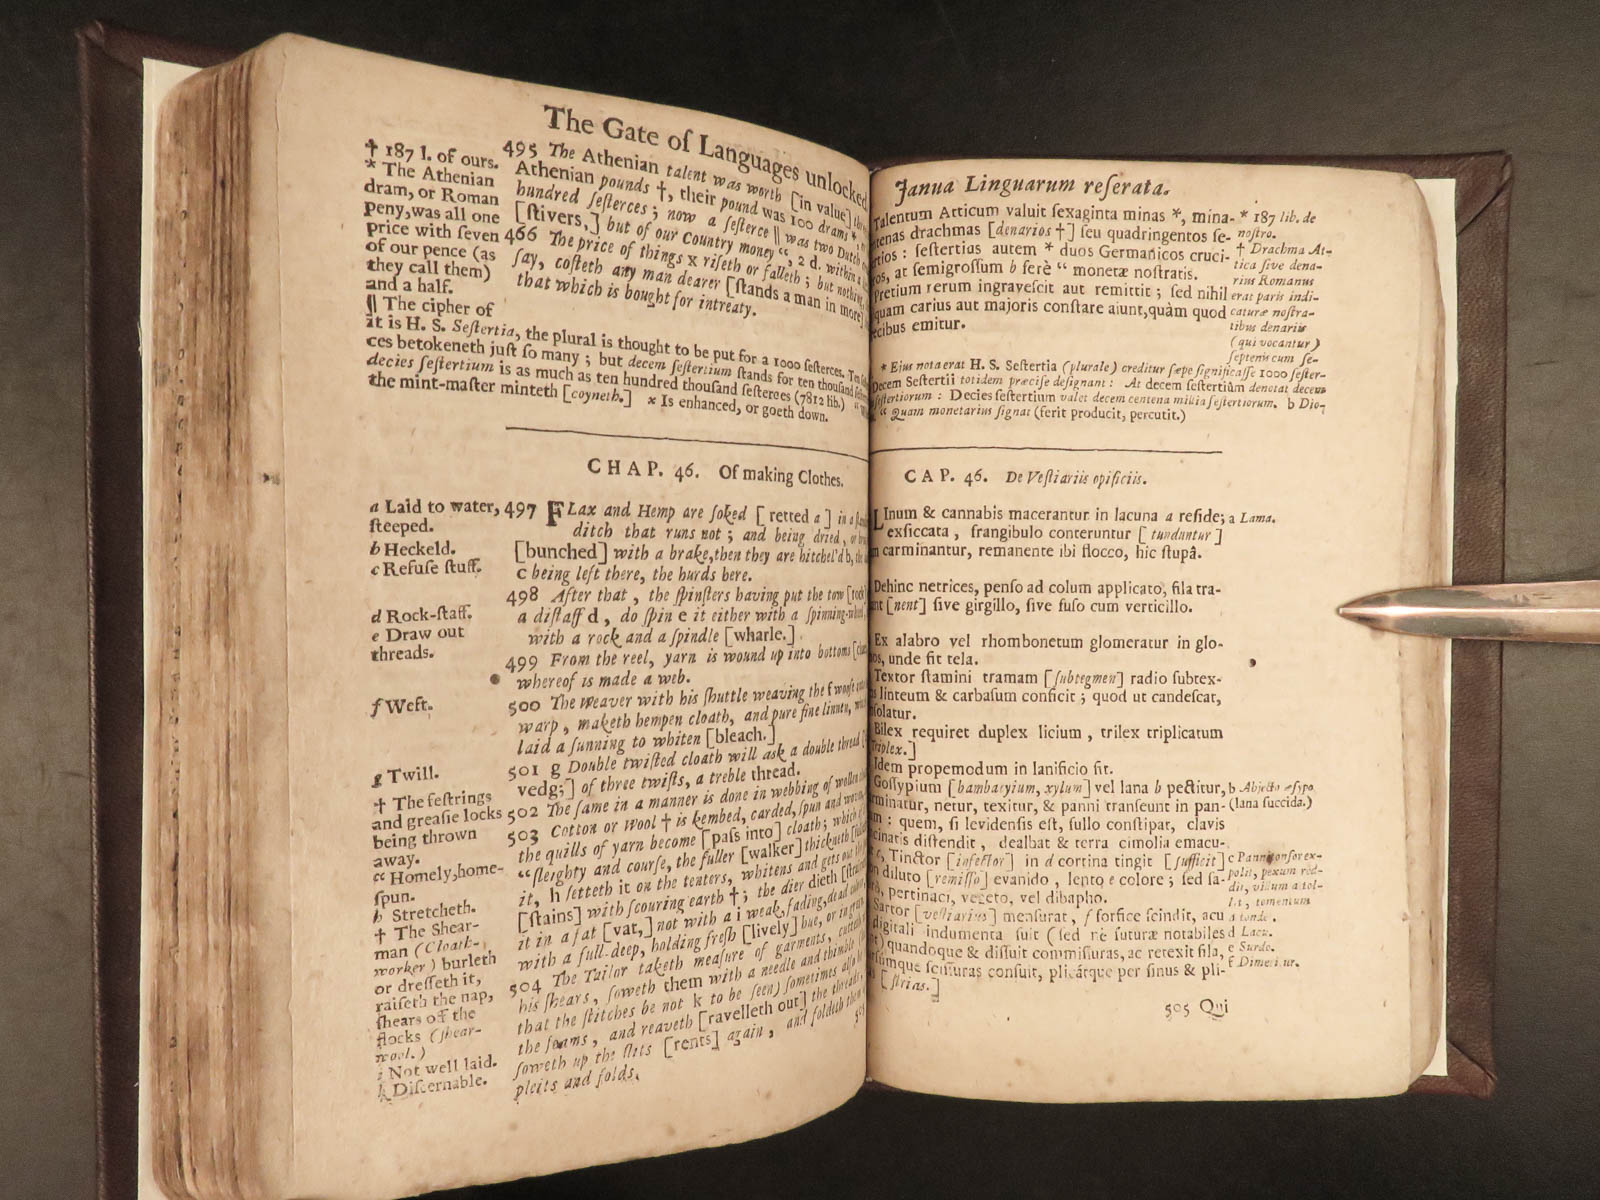 The Gate of Languages unlocked
† 187 l. of ours.
* The Athenian
dram, or Roman
peny, was all one
price with ſeven
of our pence (as
they call them)
and a half.
‖ The cipher of
495 The Athenian talent was worth [in value]
Athenian pounds †, their pound was 100 drams *,
hundred ſeſterces; now a ſeſterce ‖ was two Dutch
[ſtivers,] but of our Country money “, 2 d. within a
466 The price of things x riſeth or falleth; but nothing,
ſay, coſteth any man dearer [ſtands a man in more]
that which is bought for intreaty.
it is H. S. Seſtertia, the plural is thought to be put for a 1000 ſeſterces. Ten
ces betokeneth juſt ſo many; but decem ſeſtertium ſtands for ten thouſand
decies ſeſtertium is as much as ten hundred thouſand ſeſterces (7812 lib.) “
the mint-maſter minteth [coyneth.] x Is enhanced, or goeth down.
CHAP. 46. Of making Clothes.
a Laid to water,
ſteeped.
b Heckeld.
c Refuſe ſtuff.
d Rock-ſtaff.
e Draw out
threads.
f Weft.
g Twill.
† The ſeſtrings
and greaſie locks
being thrown
away.
“ Homely, home-
ſpun.
h Stretcheth.
† The Shear-
man (Cloath-
worker) burleth
or dreſſeth it,
raiſeth the nap,
ſhears off the
flocks (ſhear-
wool.)
i Not well laid.
k Diſcernable.
497 FLax and Hemp are ſoked [retted a] in a
ditch that runs not; and being dried,
[bunched] with a brake, then they are hitchel'd b, the
c being left there, the hurds here.
498 After that, the ſpinſters having put the tow [rock]
a diſtaff d, do ſpin e it either with a ſpinning-wheel,
with a rock and a ſpindle [wharle.]
499 From the reel, yarn is wound up into bottoms
whereof is made a web.
500 The Weaver with his ſhuttle weaving the f woofe
warp, maketh hempen cloath, and pure fine linnen,
laid a ſunning to whiten [bleach.]
501 g Double twiſted cloath will ask a double thread
vedg;] of three twiſts, a treble thread.
502 The ſame in a manner is done in webbing of wollen
503 Cotton or Wool † is kembed, carded, ſpun and woven,
the quills of yarn become [paſs into] cloath; which
“ſleighty and courſe, the fuller [walker] thickneth
it, h ſetteth it on the tenters, whitens and gets out the
[ſtains] with ſcouring earth †; the dier dieth
it in a fat [vat,] not with a i weak, fading, dead colour,
with a full-deep, holding freſh [lively] hue, or ingrain
504 The Tailor taketh meaſure of garments, cutteth
his ſhears, ſoweth them with a needle and thimble
that the ſtitches be not k to be ſeen) ſometimes alſo he
the ſeams, and reaveth [ravelleth out] the threads,
ſoweth up the ſlits [rents] again, and foldeth them
pleits and folds.
505
Janua Linguarum reſerata.
Talentum Atticum valuit ſexaginta minas *, mina-
tenas drachmas [denarios †] ſeu quadringentos ſe-
rtios: ſeſtertius autem * duos Germanicos cruci-
ros, at ſemigroſſum b ferè “ monetæ noſtratis.
Pretium rerum ingraveſcit aut remittit; ſed nihil
quam carius aut majoris conſtare aiunt, quàm quod
ecibus emitur.
* 187 lib. de
noſtro.
† Drachma At-
tica ſive dena-
rius Romanus
erat paris indi-
caturæ noſtra-
tibus denariis
(qui vocantur)
ſeptenis cum ſe-
* Ejus nota erat H. S. Seſtertia (plurale) creditur ſæpe ſignificaſſe 1000 ſeſter-
Decem Seſtertii totidem præciſe deſignant: At decem ſeſtertiûm denotat decem
ſeſtertiorum: Decies ſeſtertium valet decem centena millia ſeſtertiorum. b Dio-
“ Quam monetarius ſignat (ferit producit, percutit.)
CAP. 46. De Veſtiariis opificiis.
LInum & cannabis macerantur in lacuna a reſide;
exſiccata, frangibulo conteruntur [tunduntur]
carminantur, remanente ibi flocco, hic ſtupâ.
Dehinc netrices, penſo ad colum applicato, fila tra-
nt [nent] ſive girgillo, ſive fuſo cum verticillo.
Ex alabro vel rhombo netum glomeratur in glo-
os, unde fit tela.
Textor ſtamini tramam [ſubtegmen] radio ſubtex-
s linteum & carbaſum conficit; quod ut candeſcat,
nſolatur.
Bilex requiret duplex licium, trilex triplicatum
[triplex.]
Idem propemodum in lanificio fit.
Goſſypium [bambacyium, xylum] vel lana b pectitur,
rminatur, netur, texitur, & panni tranſeunt in pan-
m: quem, ſi levidenſis eſt, fullo conſtipat, clavis
cinatis diſtendit, dealbat & terra cimolia emacu-
c, Tinctor [infector] in d cortina tingit [ſufficit]
n diluto [remiſſo] evanido, lento e colore; ſed ſa-
rò, pertinaci, vegeto, vel dibapho.
Sartor [veſtiarius] menſurat, f forfice ſcindit, acu
digitali indumenta ſuit (ſed nè ſuturæ notabiles
t) quandoque & diſſuit commiſſuras, ac retexit fila,
rſumque ſciſſuras conſuit, plicátque per ſinus & pli-
s [ſtrias.]
a Lama.
b Abjecto œſypo
(lana ſuccida.)
c Panni tonſor ex-
polit, pexum red-
dit, villum attol-
lit, tomentum
a tonde.
d Lacu.
e Surdo.
f Dimetitur.
505 Qui